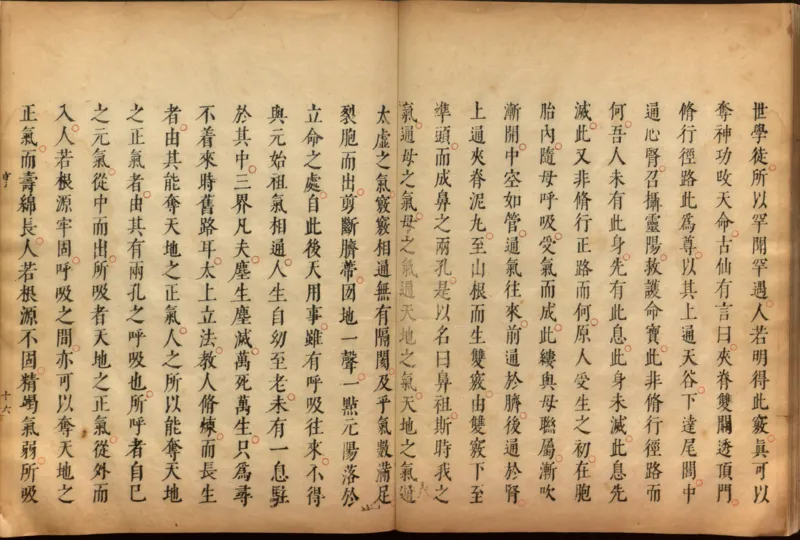 世學徒所以罕聞罕遇人若明得此竅眞可以
奪神功攺天命古仙有言曰夾脊雙關透頂門
脩行徑路此爲尊以其上通天谷下達尾閭中
通心腎召攝靈陽救護命寶此非脩行徑路而
何吾人未有此身先有此息此身未滅此息先
滅此又非脩行正路而何原人受生之初在胞
胎內隨母呼吸受氣而成此縷與母聯屬漸吹
漸開中空如管通氣往來前通於臍後通於腎
上通夾脊泥九至山根而生雙竅由雙竅下至
準頭而成鼻之兩孔是以名曰鼻祖斯時我之
氣通母之氣母之氣通天地之氣天地之氣通
太虛之氣竅竅相通無有隔閡及乎氣數滿足
裂胞而出剪斷臍蔕㘞地一聲一點元陽落於
立命之處自此後天用事雖有呼吸往來不得
與元始祖氣相通人生自幼至老未有一息駐
於其中三界凡夫塵生塵滅萬死萬生只爲尋
不着來時舊路耳太上立法教人脩煉而長生
者由其能奪天地之正氣人之所以能奪天地
之正氣者由其有兩孔之呼吸也所呼者自己
之元氣從中而出所吸者天地之正氣從外而
入人若根源牢固呼吸之間亦可以奪天地之
正氣而壽綿長人若根源不固精竭氣弱所吸
十六